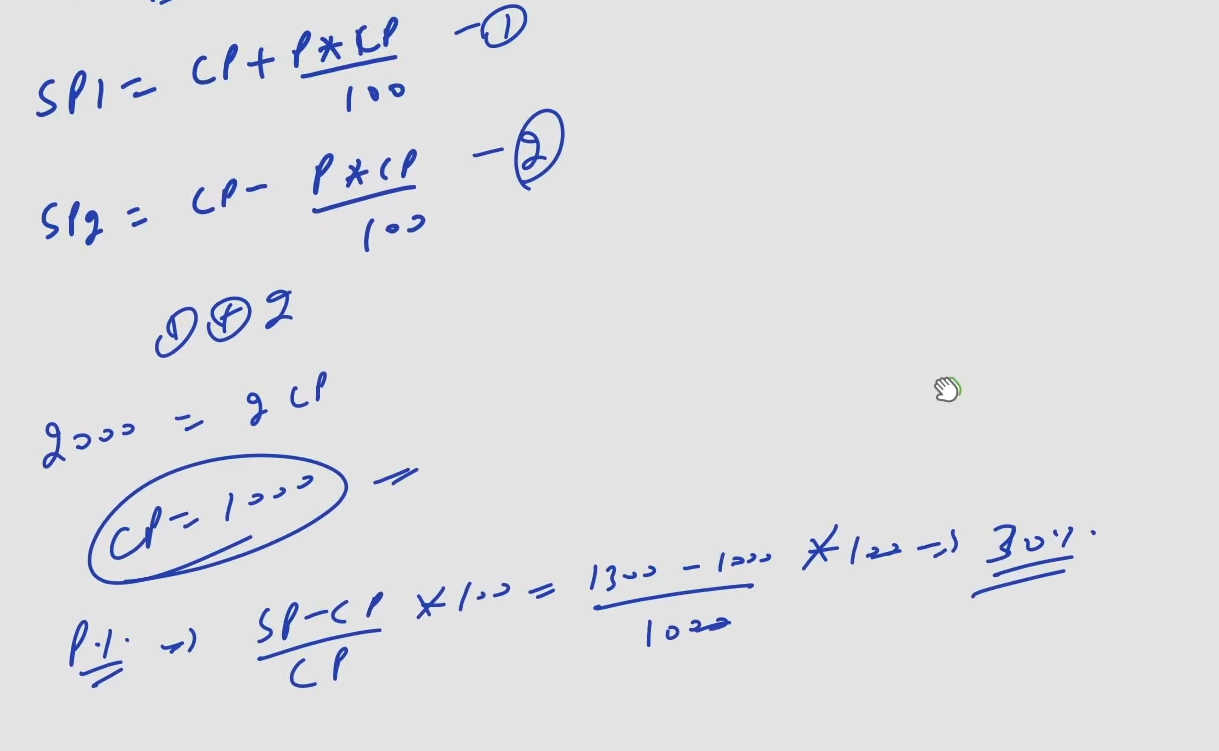 SP1 = CP + P * CP / 100 - ①
SP2 = CP - P * CP / 100 - ②
① ⊕ 2
2000 = 2 CP
CP = 1000 =
P.%. => SP - CP / CP * 100 = 1300 - 1000 / 1000 * 100 => 30%.